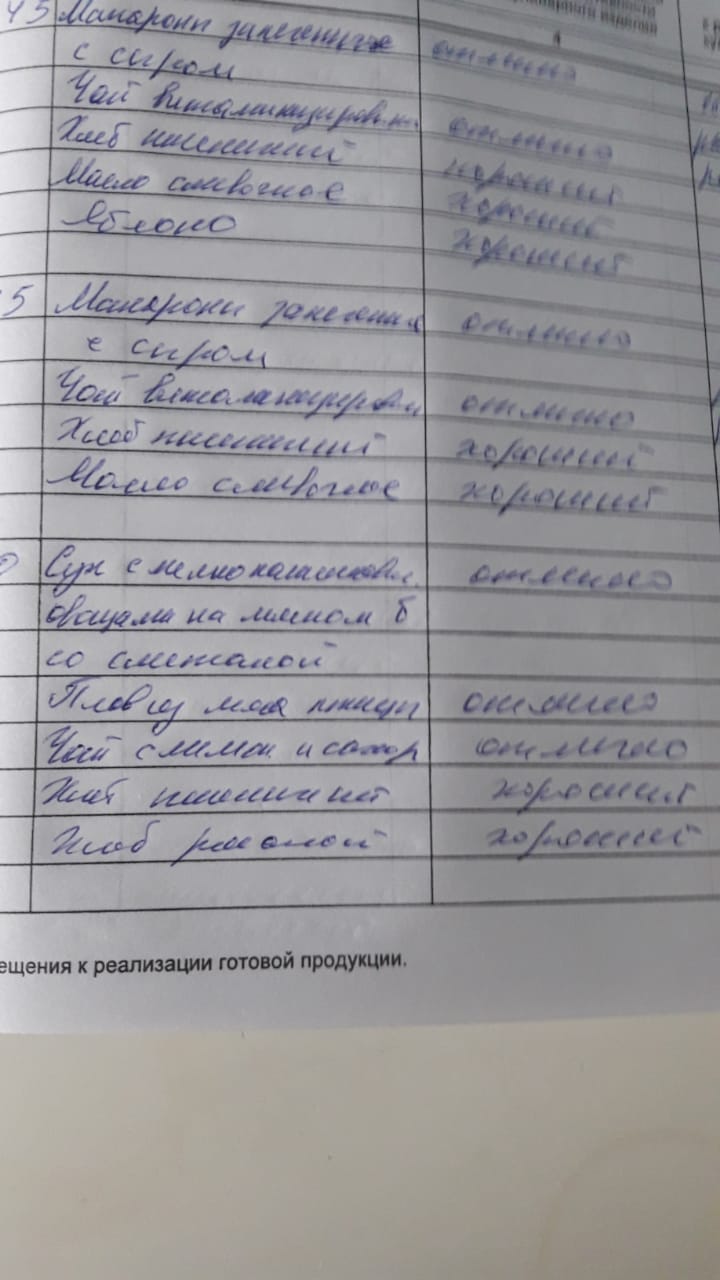 45 Макарони запеченные отлично
с сыром
Чай витаминизирован. отлично
Хлеб пшеничный хороший
Масло сливочное хороший
Яблоко хороший
5 Макарони запечення отлично
с сыром
Чай витаминизирован отлично
Хлеб пшеничный хороший
Масло сливочное хороший
0 Суп с мелкопашинкован. отлично
овощами на мясном б
со сметаной
Плов из мяса птицы отлично
Чай с лимон. и сахар отлично
Хлеб пшеничный хороший
Хлеб ржаной хороший
ещения к реализации готовой продукции.